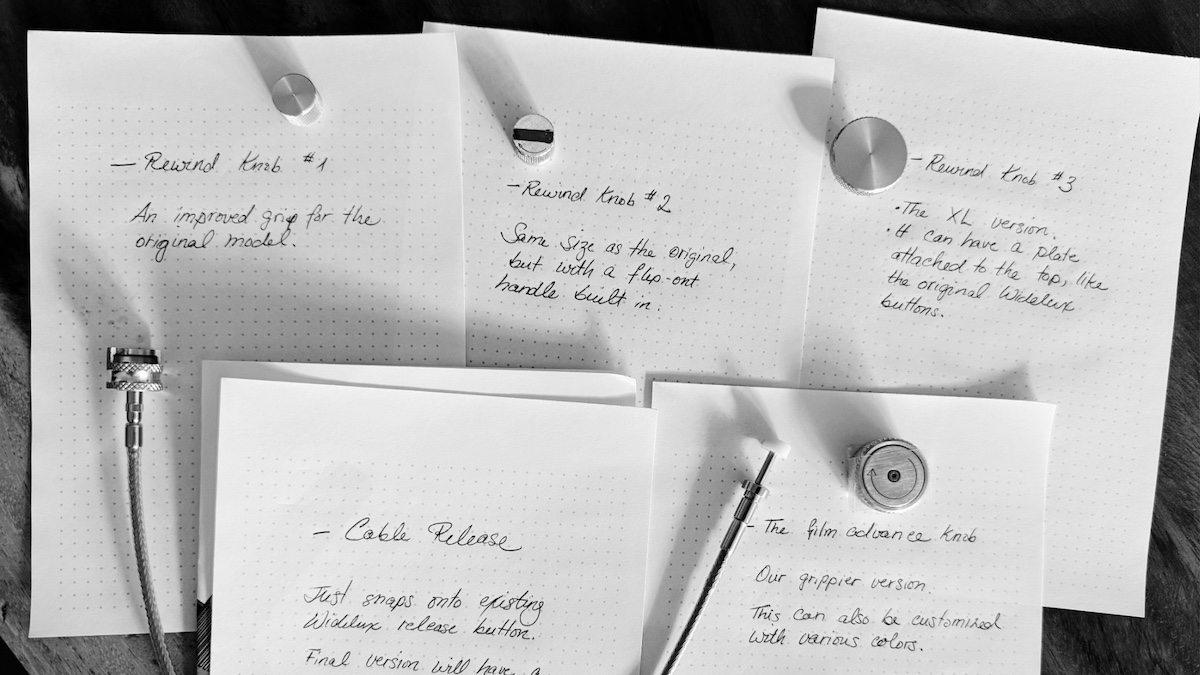 — Rewind Knob #1
An improved grip for the
original model.
– Rewind Knob #2
Same size as the original,
but with a flip-out
handle built in.
– Rewind Knob #3
• The XL version.
• It can have a plate
attached to the top, like
the original Widelux
buttons.
– Cable Release
Just snaps onto existing
Widelux release button.
Final version will have a
– The film advance knob
Our grippier version.
This can also be customized
with various colors.